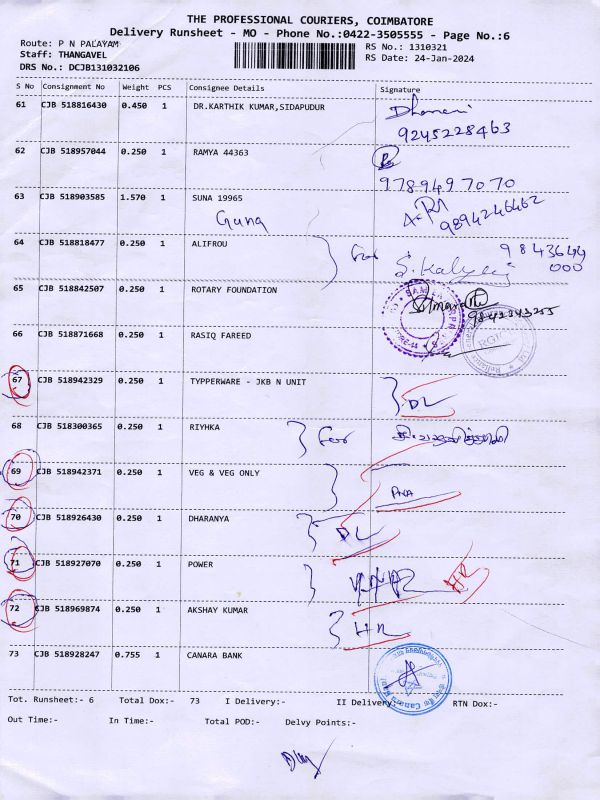 THE PROFESSIONAL COURIERS, COIMBATORE
Delivery Runsheet - MO - Phone No.:0422-3505555 - Page No.:6
Route: P N PALAYAM
RS No.: 1310321
Staff: THANGAVEL
RS Date: 24-Jan-2024
DRS No.: DCJB131032106
S No Consignment No Weight PCS Consignee Details Signature
61 CJB 518816430 0.450 1 DR.KARTHIK KUMAR,SIDAPUDUR
9245228463
62 CJB 518957044 0.250 1 RAMYA 44363
9789497070
63 CJB 518903585 1.570 1 SUNA 19965
Guna
9894246462
64 CJB 518818477 0.250 1 ALIFROU
for S. 9843644
000
65 CJB 518842507 0.250 1 ROTARY FOUNDATION
9842243255
66 CJB 518871668 0.250 1 RASIQ FAREED
67 CJB 518942329 0.250 1 TYPPERWARE - JKB N UNIT
DL
68 CJB 518300365 0.250 1 RIYHKA for
69 CJB 518942371 0.250 1 VEG & VEG ONLY
70 CJB 518926430 0.250 1 DHARANYA
DL
71 CJB 518927070 0.250 1 POWER
HR
72 CJB 518969874 0.250 1 AKSHAY KUMAR
HR
73 CJB 518928247 0.755 1 CANARA BANK
Tot. Runsheet:- 6 Total Dox:- 73 I Delivery:- II Delivery:- RTN Dox:-
Out Time:- In Time:- Total POD:- Delvy Points:-